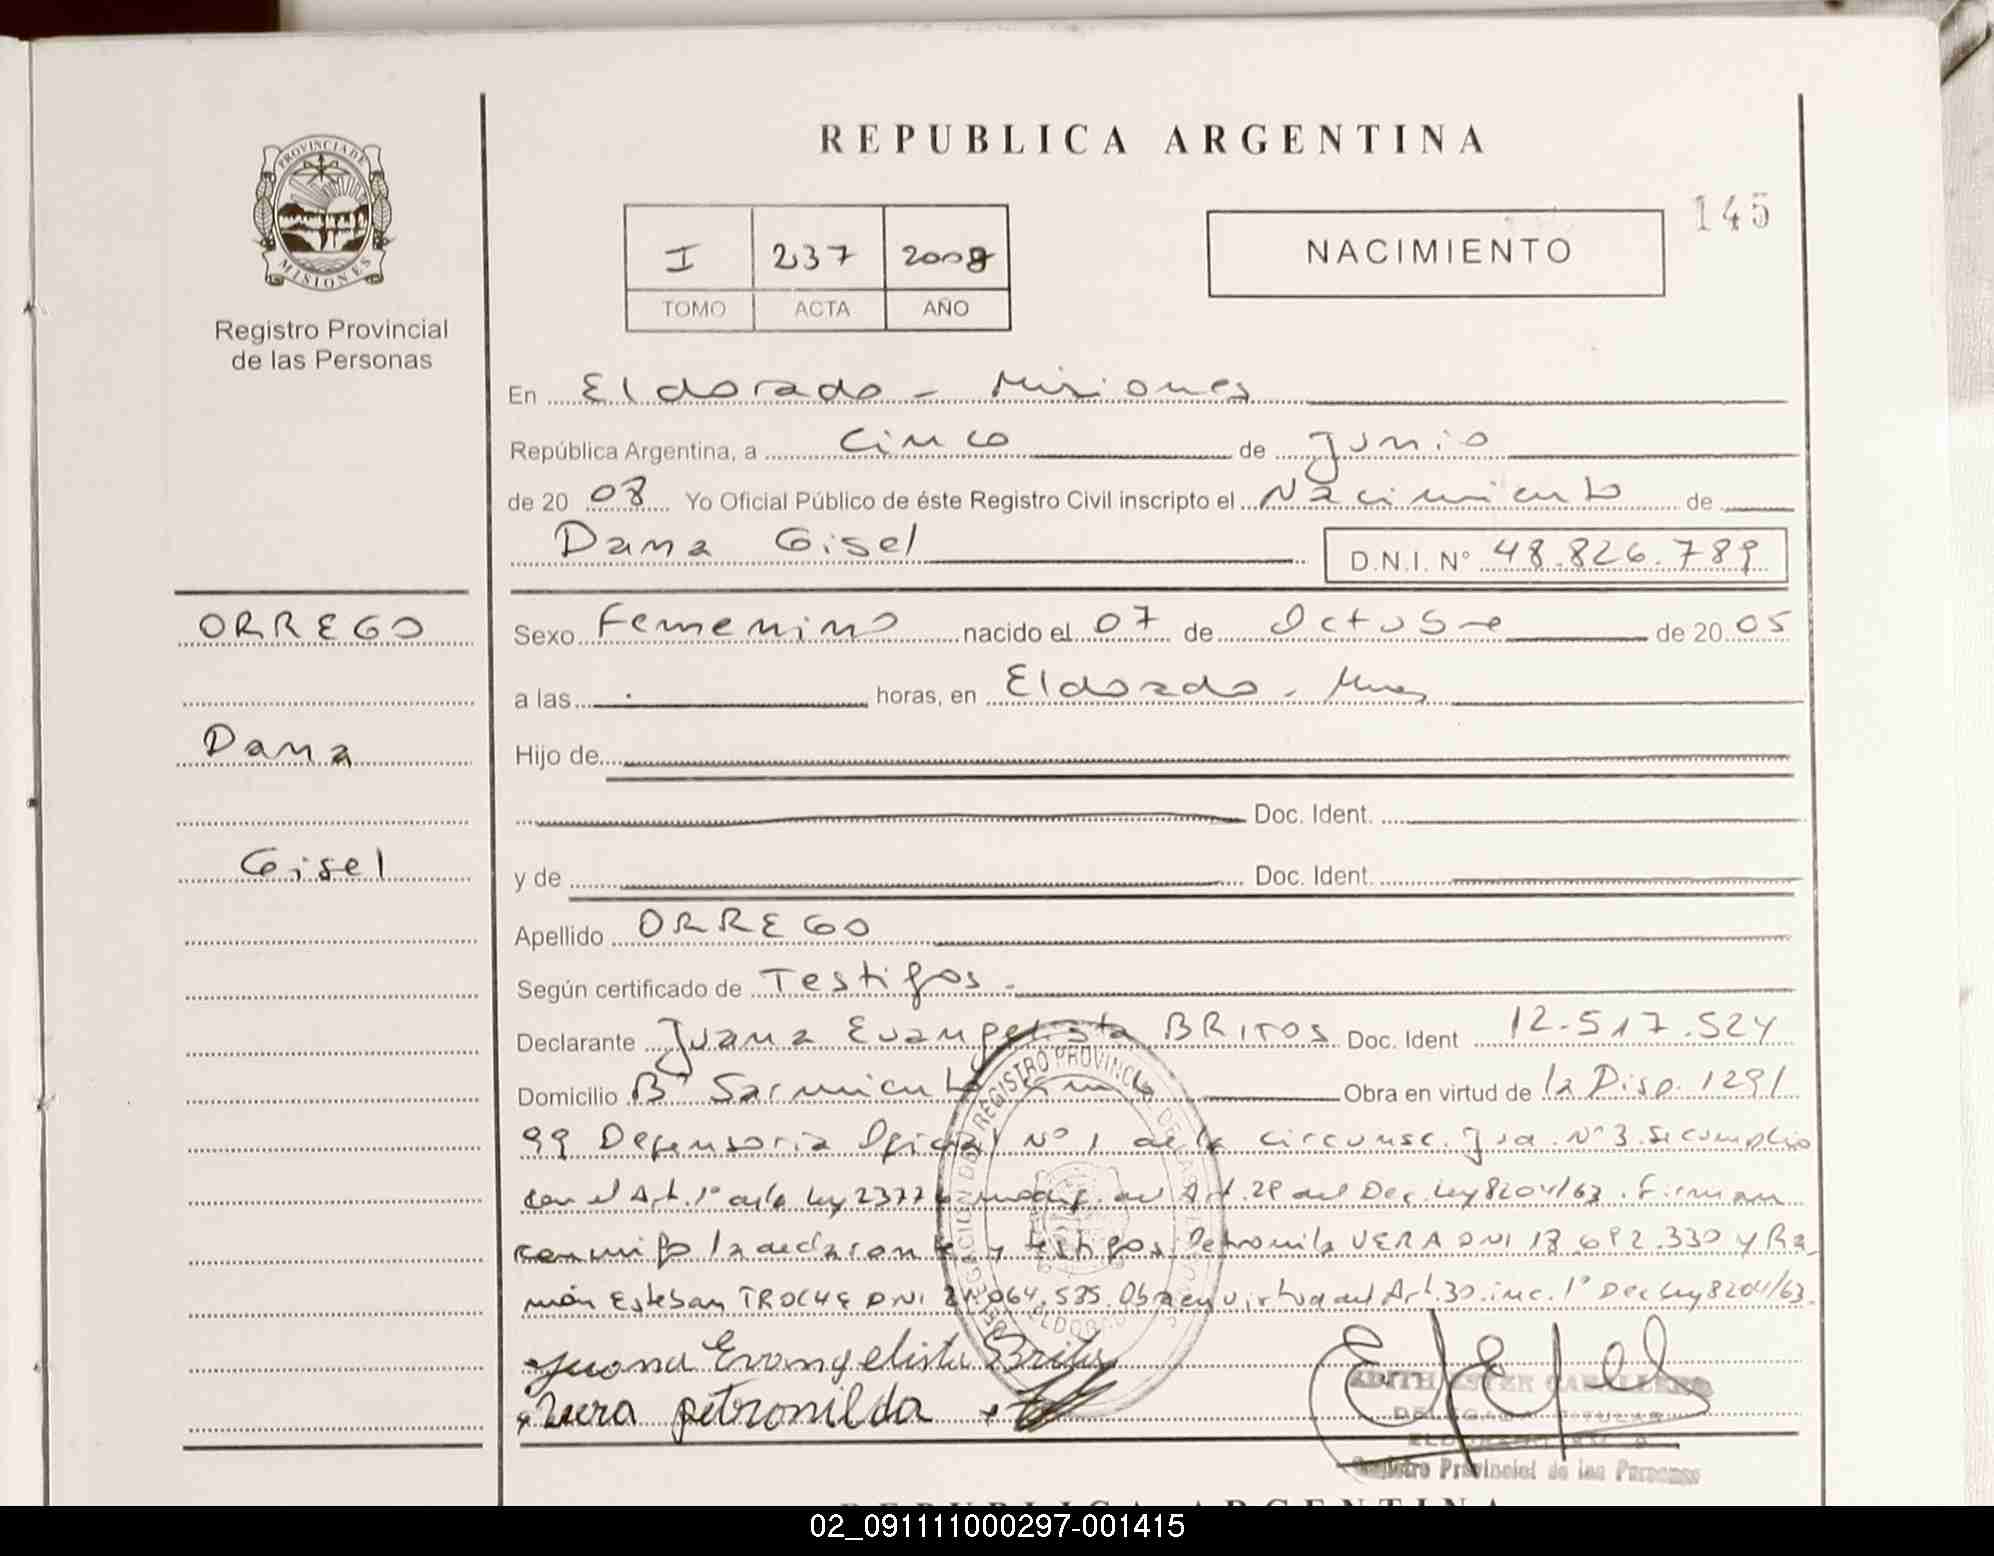 REPUBLICA ARGENTINA
PROVINCIA DE
MISIONES
Registro Provincial
de las Personas
I 237 2008
TOMO ACTA AÑO
NACIMIENTO
145
En Eldorado - Misiones
República Argentina, a cinco de Junio
de 20 08 Yo Oficial Público de éste Registro Civil inscripto el Nacimiento de
Dana Gisel D.N.I. N° 48.826.789
ORREGO
Dana
Gisel
Sexo Femenino nacido el 07 de Octubre de 20 05
a las horas, en Eldorado - Mnes
Hijo de
Doc. Ident.
y de Doc. Ident.
Apellido ORREGO
Según certificado de Testigos.
Declarante Juana Evangelista BRITOS Doc. Ident 12.517.524
Domicilio B° Sarmiento Obra en virtud de la Disp. 1291
99 Defensoria Oficial N° 1 de la circunsc. Jud. N° 3. Se cumplio
con el Art. 1° de la Ley 2377 modif. del Art. 29 del Dec. Ley 8204/63. Firman
conmigo la declarante y testigos Petronila VERA DNI 330 y Ra
món Esteban TROCHE DNI 064.535. Obra en virtud del Art. 30. inc. 1° Dec Ley 8204/63.
Juana Evangelista Britos
Vera petronilda
EDITH ESTER CABALLERO
DELEGADA TITULAR
Registro Provincial de las Personas
REPUBLICA ARGENTINA
02_091111000297-001415